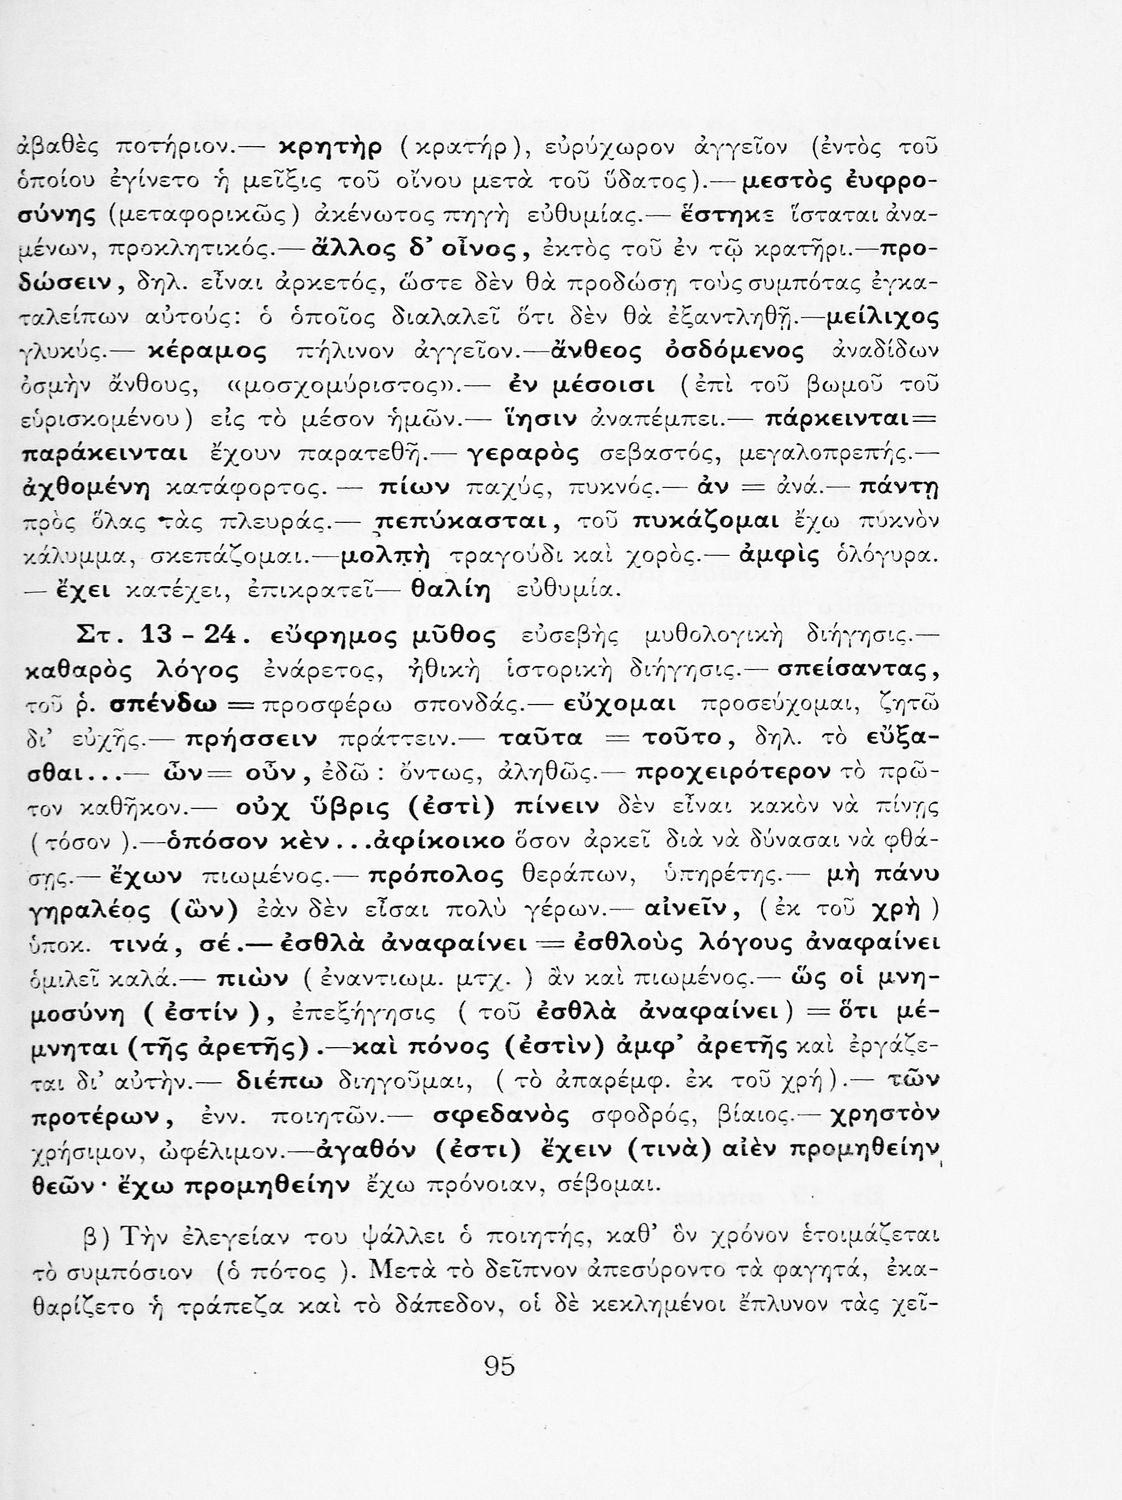 ἀβαθὲς ποτήριον.— κρητὴρ (κρατήρ), εὐρύχωρον ἀγγεῖον (ἐντὸς τοῦ
ὁποίου ἐγίνετο ἡ μεῖξις τοῦ οἴνου μετὰ τοῦ ὕδατος).— μεστὸς ἐυφρο-
σύνης (μεταφορικῶς) ἀκένωτος πηγὴ εὐθυμίας.— ἕστηκε ἵσταται ἀνα-
μένων, προκλητικός.— ἄλλος δ’ οἶνος, ἐκτὸς τοῦ ἐν τῷ κρατῆρι.—προ-
δώσειν, δηλ. εἶναι ἀρκετός, ὥστε δὲν θὰ προδώσῃ τοὺς συμπότας ἐγκα-
ταλείπων αὐτούς: ὁ ὁποῖος διαλαλεῖ ὅτι δὲν θὰ ἐξαντληθῇ.—μείλιχος
γλυκύς.— κέραμος πήλινον ἀγγεῖον.—ἄνθεος ὀσδόμενος ἀναδίδων
ὀσμὴν ἄνθους, «μοσχομύριστος».— ἐν μέσοισι (ἐπὶ τοῦ βωμοῦ τοῦ
εὑρισκομένου) εἰς τὸ μέσον ἡμῶν.— ἵησιν ἀναπέμπει.— πάρκεινται=
παράκεινται ἔχουν παρατεθῆ.— γεραρὸς σεβαστός, μεγαλοπρεπής.—
ἀχθομένη κατάφορτος. — πίων παχύς, πυκνός.— ἀν = ἀνά.— πάντῃ
πρὸς ὅλας τὰς πλευράς.— πεπύκασται, τοῦ πυκάζομαι ἔχω πυκνὸν
κάλυμμα, σκεπάζομαι.—μολπὴ τραγούδι καὶ χορὸς.— ἀμφὶς ὁλόγυρα.
— ἔχει κατέχει, ἐπικρατεῖ— θαλίη εὐθυμία.
Στ. 13 - 24. εὔφημος μῦθος εὐσεβὴς μυθολογικὴ διήγησις.—
καθαρὸς λόγος ἐνάρετος, ἠθικὴ ἱστορικὴ διήγησις.— σπείσαντας,
τοῦ ῥ. σπένδω = προσφέρω σπονδάς.— εὔχομαι προσεύχομαι, ζητῶ
δι’ εὐχῆς.— πρήσσειν πράττειν.— ταῦτα = τοῦτο, δηλ. τὸ εὔξα-
σθαι...— ὦν= οὖν, ἐδῶ : ὄντως, ἀληθῶς.— προχειρότερον τὸ πρῶ-
τον καθῆκον.— οὐχ ὕβρις (ἐστὶ) πίνειν δὲν εἶναι κακὸν νὰ πίνῃς
(τόσον ).—ὁπόσον κὲν...ἀφίκοικο ὅσον ἀρκεῖ διὰ νὰ δύνασαι νὰ φθά-
σῃς.— ἔχων πιωμένος.— πρόπολος θεράπων, ὑπηρέτης.— μὴ πάνυ
γηραλέος (ὢν) ἐὰν δὲν εἶσαι πολὺ γέρων.— αἰνεῖν, (ἐκ τοῦ χρὴ )
ὑποκ. τινά, σέ.— ἐσθλὰ ἀναφαίνει = ἐσθλοὺς λόγους ἀναφαίνει
ὁμιλεῖ καλά.— πιὼν ( ἐναντιωμ. μτχ. ) ἂν καὶ πιωμένος.— ὥς οἱ μνη-
μοσύνη ( ἐστίν ), ἐπεξήγησις ( τοῦ ἐσθλὰ ἀναφαίνει) = ὅτι μέ-
μνηται (τῆς ἀρετῆς) .—καὶ πόνος (ἐστὶν) ἀμφ’ ἀρετῆς καὶ ἐργάζε-
ται δι’ αὐτὴν.— διέπω διηγοῦμαι, ( τὸ ἀπαρέμφ. ἐκ τοῦ χρή).— τῶν
προτέρων, ἐνν. ποιητῶν.— σφεδανὸς σφοδρός, βίαιος.— χρηστὸν
χρήσιμον, ὠφέλιμον.—ἀγαθόν (ἐστι) ἔχειν (τινὰ) αἰὲν προμηθείην
θεῶν· ἔχω προμηθείην ἔχω πρόνοιαν, σέβομαι.
β) Τὴν ἐλεγείαν του ψάλλει ὁ ποιητής, καθ’ ὃν χρόνον ἑτοιμάζεται
τὸ συμπόσιον (ὁ πότος ). Μετὰ τὸ δεῖπνον ἀπεσύροντο τὰ φαγητά, ἐκα-
θαρίζετο ἡ τράπεζα καὶ τὸ δάπεδον, οἱ δὲ κεκλημένοι ἔπλυνον τὰς χεῖ-
95